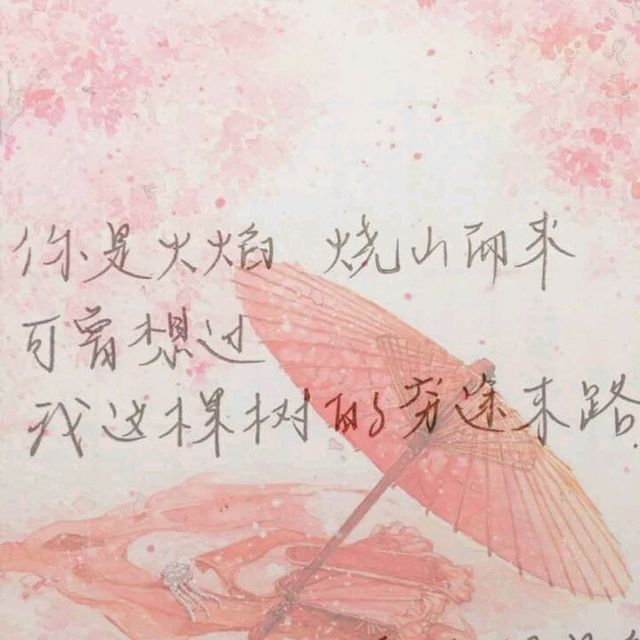 你是火焰 烧山而来
可曾想过
我这棵树的穷途末路